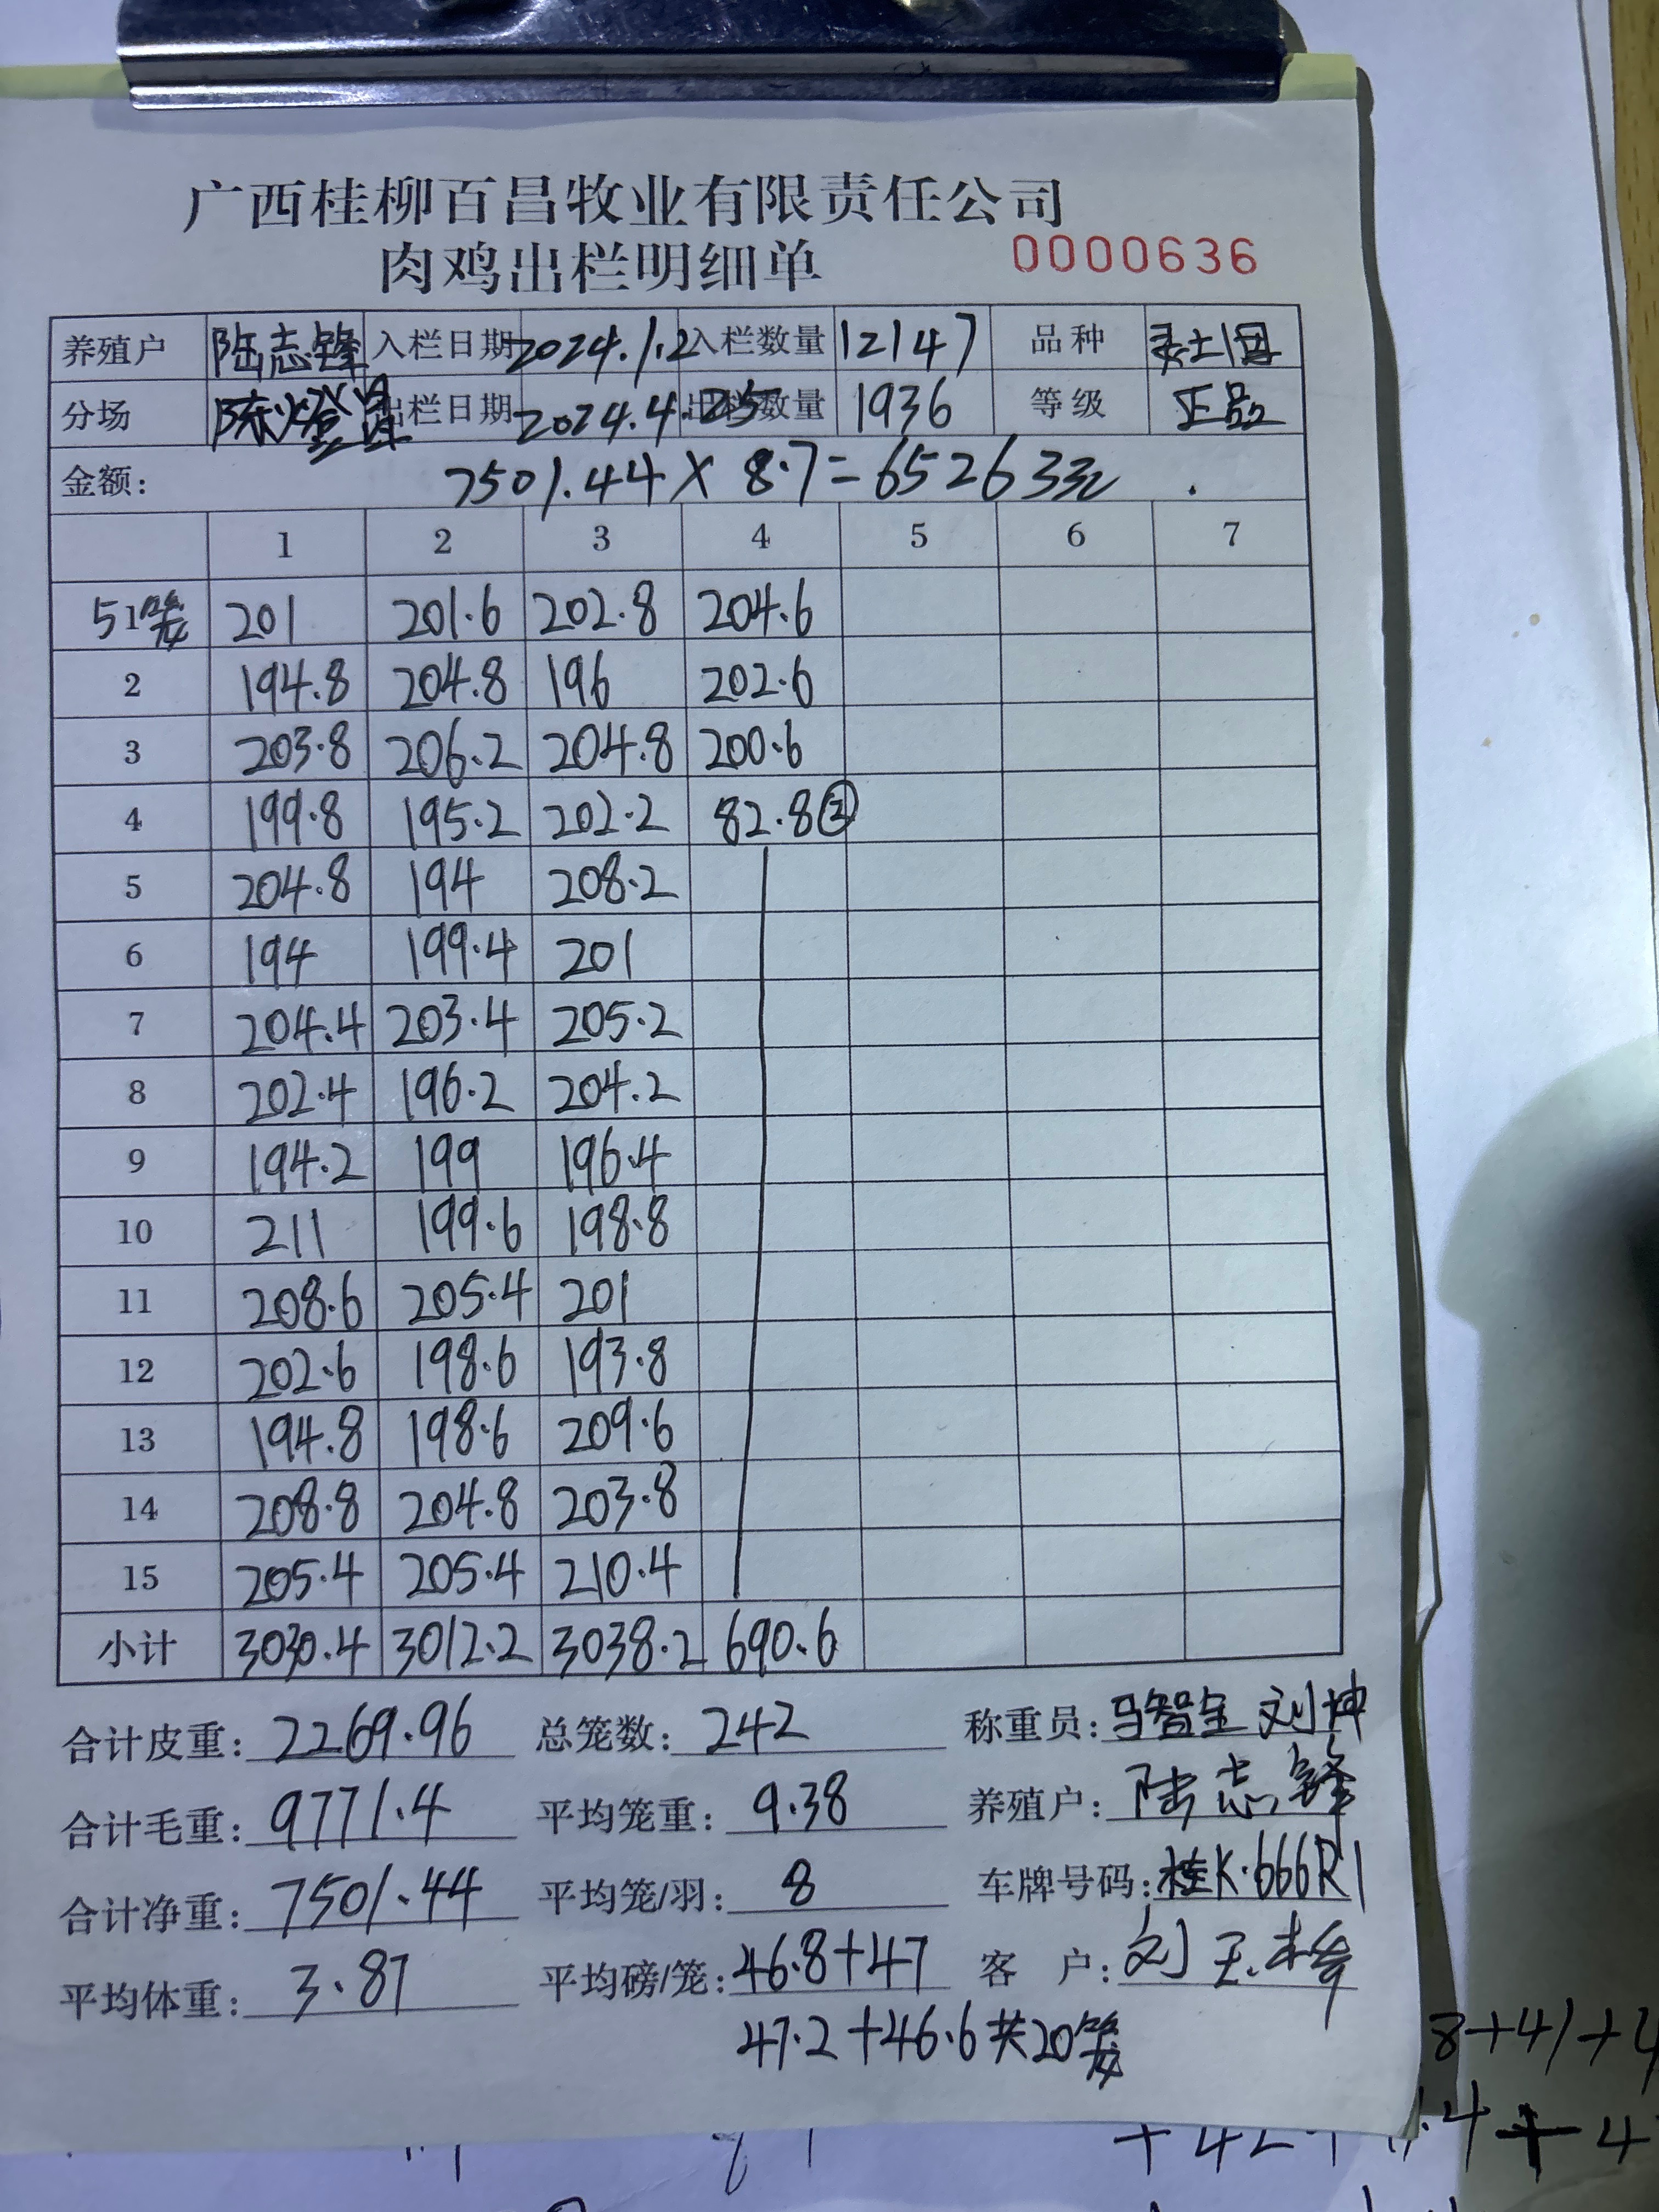 广西桂柳百昌牧业有限责任公司
肉鸡出栏明细单 0000636
养殖户 陆志锋 入栏日期 2024.1.2 入栏数量 12147 品种
分场 出栏日期 2024.4.25 出栏数量 1936 等级 正品
金额: 7501.44×8.7=65263元
1 2 3 4 5 6 7
5笼 201 201.6 202.8 204.6
2 194.8 204.8 196 202.6
3 203.8 206.2 204.8 200.6
4 199.8 195.2 202.2 82.8②
5 204.8 194 208.2
6 194 199.4 201
7 204.4 203.4 205.2
8 202.4 196.2 204.2
9 194.2 199 196.4
10 211 199.6 198.8
11 208.6 205.4 201
12 202.6 198.6 193.8
13 194.8 198.6 209.6
14 208.8 204.8 203.8
15 205.4 205.4 210.4
小计 3030.4 3012.2 3038.2 690.6
合计皮重: 2269.96 总笼数: 242 称重员: 马智宝 刘坤
合计毛重: 9771.4 平均笼重: 9.38 养殖户: 陆志锋
合计净重: 7501.44 平均笼/羽: 8 车牌号码: 桂K·666R1
平均体重: 3.87 平均磅/笼: 46.8+47 客 户: 刘
47.2+46.6共20笼
8+41+4